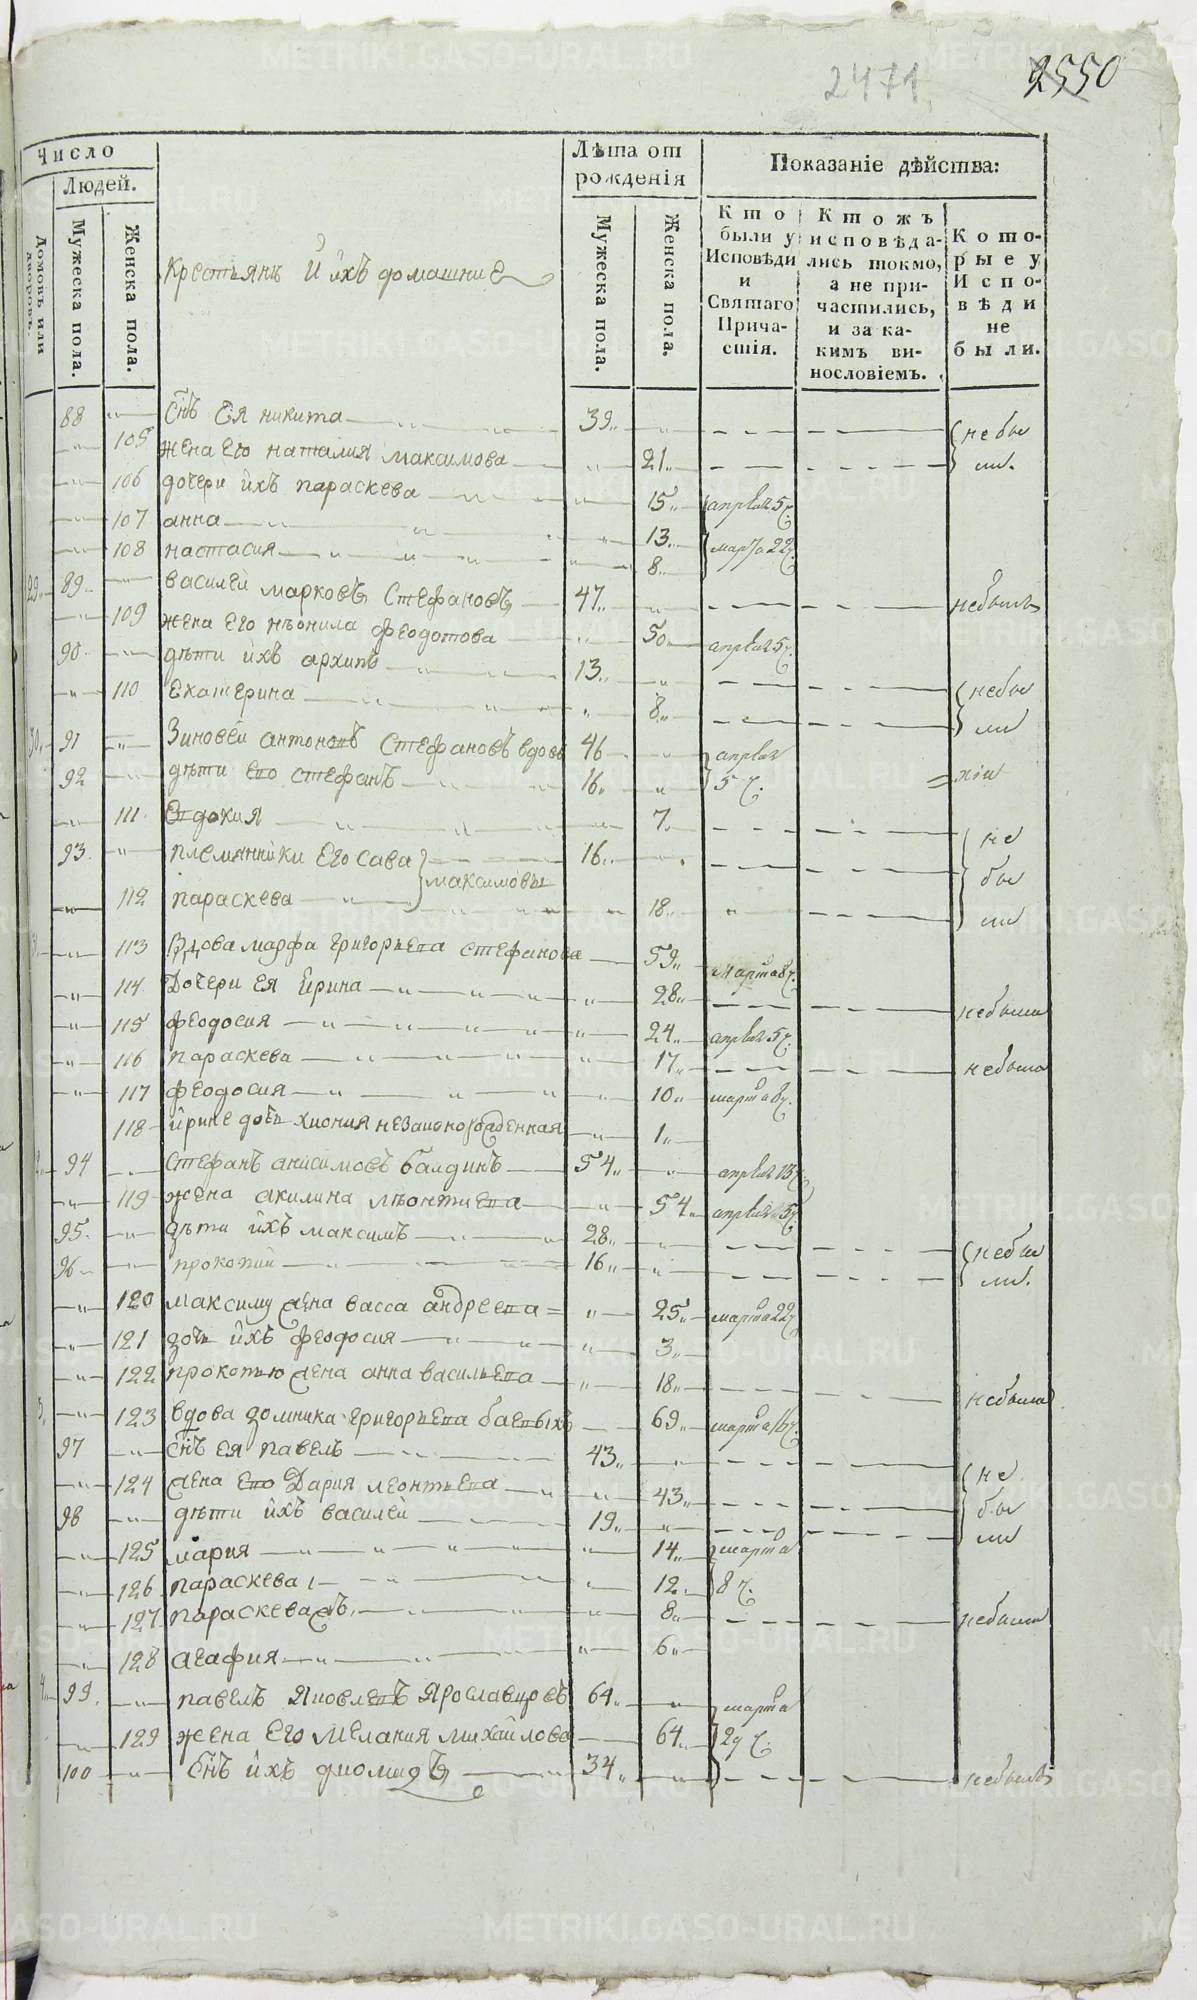 2471.
2550
Число
Людей.
Домовъ или дворовъ.
Мужеска пола.
Женска пола.
Крестьянъ и ихъ домашние
Лѣта от рожденія
Мужеска пола.
Женска пола.
Показаніе дѣйства:
Кто были у Исповѣди и Святаго Причастія.
Ктожъ исповѣдались токмо, а не причастились, и за какимъ винословіемъ.
Которые у Исповѣди не были.
88 снъ Ея никита 39 небы
105 жена его наталия максимова 21 ли.
106 дочери ихъ параскева 15 апреля 5 ч.
107 анна 13
108 настасия 8 марта 22 ч.
29 89 василей марковъ Стефановъ 47 небылъ
109 жена Его нѣонила феодотова 50 апреля 5 ч.
90 дѣти ихъ архипъ 13 небы
110 Екатерина 8 ли
30 91 Зиновей антоновъ Стефановъ вдовъ 46 апреля
92 дѣти его стефанъ 16 5 ч.
111 Евдокия 7 не
93 племянники Его Сава 16 бы
максимовы
112 параскева 18 ли
113 Вдова марфа григорьева стефанова 59 марта 8 ч.
114 Дочери Ея Ирина 28 небыла
115 феодосия 24 апреля 5 ч.
116 параскева 17 небыла
117 феодосия 10 марта 8 ч.
118 ирине дочь хиония незаконорожденная 1
94 Стефанъ анисимовъ балдинъ 54 апреля 13 ч.
119 жена акилина лѣонтиева 54 апреля 5 ч.
95 дѣти ихъ максимъ 28 небы
96 прокопий 16 ли.
120 максиму жена васса андреева 25 марта 22 ч.
121 дочь ихъ феодосия 3
122 прокопью жена анна васильева 18 небыла
123 вдова домника григорьева 69 марта 16 ч.
97 снъ ея павелъ 43 не
124 жена его Дария леонтьева 43 бы
98 дѣти ихъ василей 19 ли
125 мария 14 марта
126 параскева 12 8 ч.
127 параскева 8 небыла
128 агафия 6
99 павелъ Яковлевъ Ярославцовъ 64 марта
129 жена Его Мелания михайлова 64 29 ч.
100 снъ ихъ диомидъ 34 небылъ
METRIKI.GASO-URAL.RU